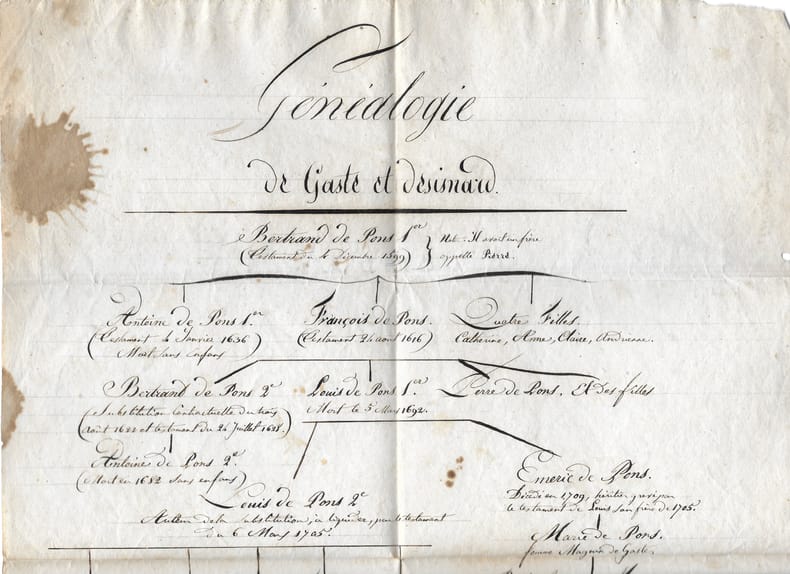 Généalogie
de Gaste et desimard.
Bertrand de Pons 1er
(Testament du 4 Décembre 1599)
Not. Il avoit un frère
appellé Pierre.
Antoine de Pons 1er.
(Testament 4 Janvier 1636)
Mort sans enfans
François de Pons.
(Testament 24 août 1616)
Quatre Filles.
Catherine, Anne, Claire, Andrienne.
Bertrand de Pons 2e
(Substitution Contractuelle du trois
août 1622 et testament du 24 Juillet 1628.)
Louis de Pons 1er
Mort le 5 Mars 1692.
Pierre de Pons, Et Des filles
Antoine de Pons 2e.
(Mort en 1682 sans enfans)
Louis de Pons 2e
Auteur de la substitution, a liquider, par le testament
du 6 Mars 1705.
Emeric de Pons.
Décédé en 1709, héritier grevé par
le testament de Louis son frère de 1705.
Marie de Pons.
femme Magnin de Gaste.